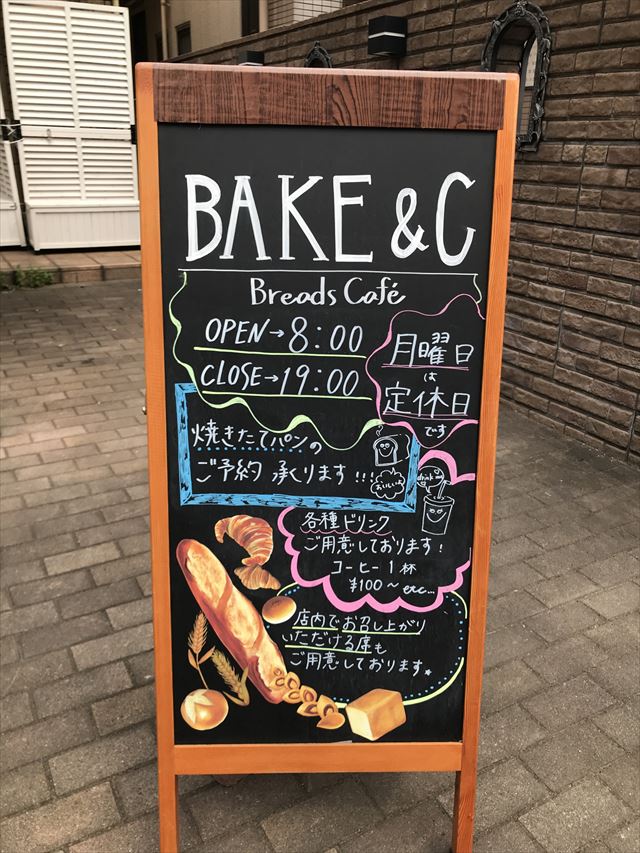 BAKE & C
Breads Café
OPEN→8:00
CLOSE→19:00
月曜日
は
定休日
です
焼きたてパンの
ご予約 承ります!!!
おいしいよ
drink me
各種ドリンク
ご用意しております!
コーヒー1杯
¥100〜 etc...
店内でお召し上がり
いただける席も
ご用意しております。